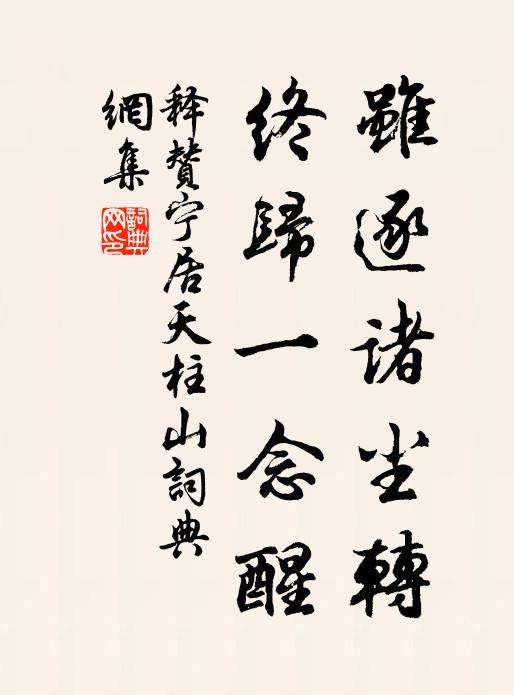 雖逐諸尘轉
終歸一念醒
释贊宁居天柱山詞典
網集
詞典網印